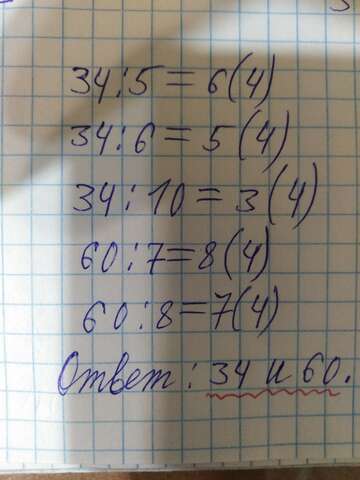 34:5=6(4)
34:6=5(4)
34:10=3(4)
60:7=8(4)
60:8=7(4)
Ответ: 34 и 60.